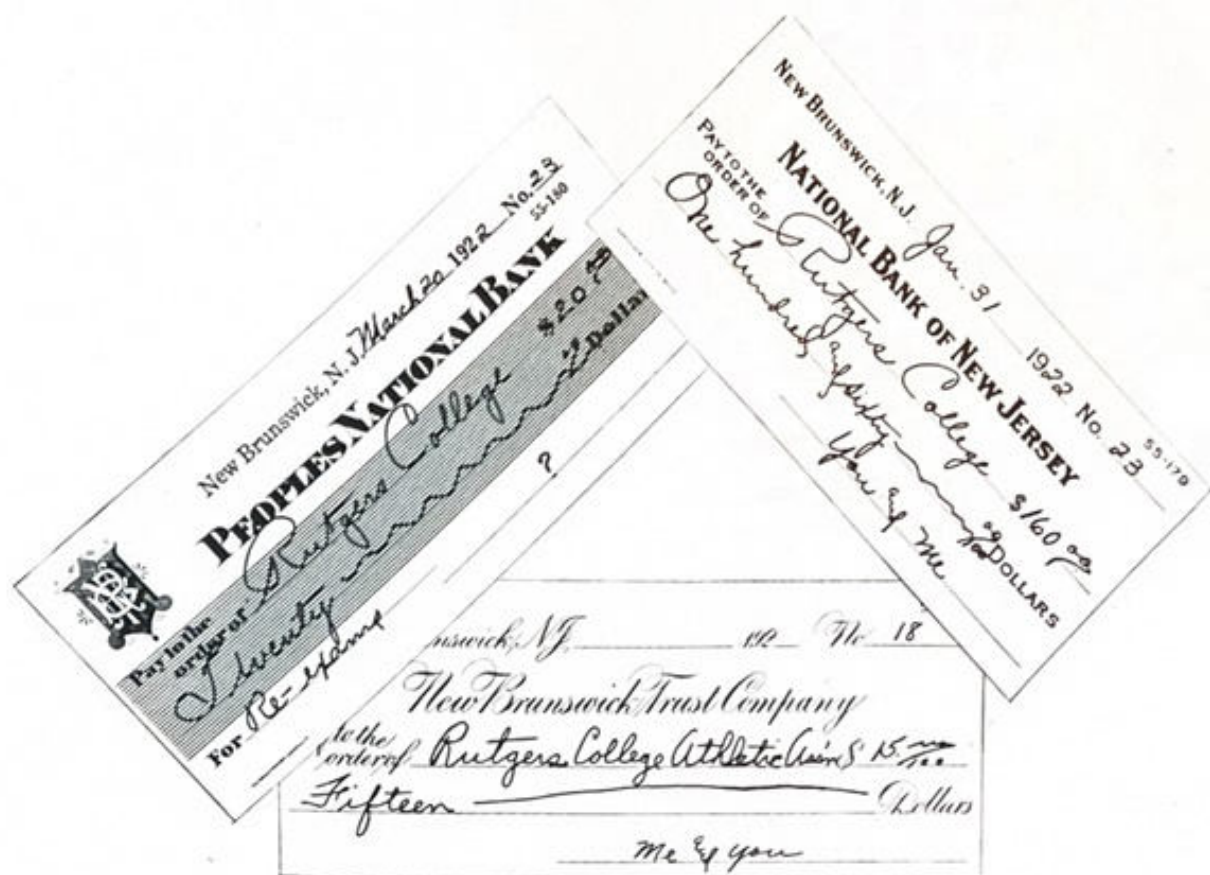 New Brunswick, N. J. March 20 1922 No. 23
55-180
PEOPLES NATIONAL BANK
Pay to the
order of Rutgers College $20
Twenty Dollar
For Re-exams ?
NEW BRUNSWICK, N.J. Jan. 31 1922 No. 23
55-179
NATIONAL BANK OF NEW JERSEY
PAY TO THE
ORDER OF Rutgers College $160
One hundred and sixty DOLLARS
You and Me
nswick, N.J. 192 No 18
New Brunswick Trust Company
to the
order of Rutgers College Athletic Ass'n $ 15 no/100
Fifteen Dollars
Me & you